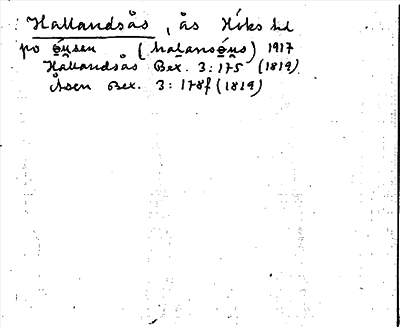 Hallandsås, ås Höks hd
po óusen (halansóus) 1917
Hallandsås Bex. 3:175 (1819)
Åsen Bex. 3:178f (1819)